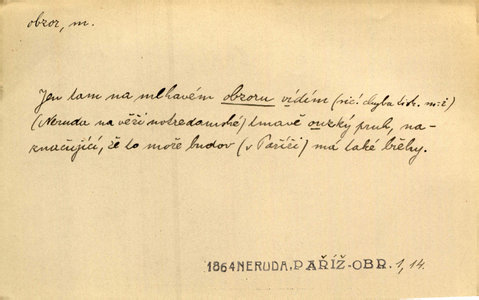 obzor, m.
Jen tam na mlhavém obzoru vidím (
(Neruda na věži notredamské) tmavě ouzký pruh, na-
značující, že to moře budov (v Paříži) má také břehy.
1864 NERUDA, PAŘÍŽ-OBR. 1, 14.